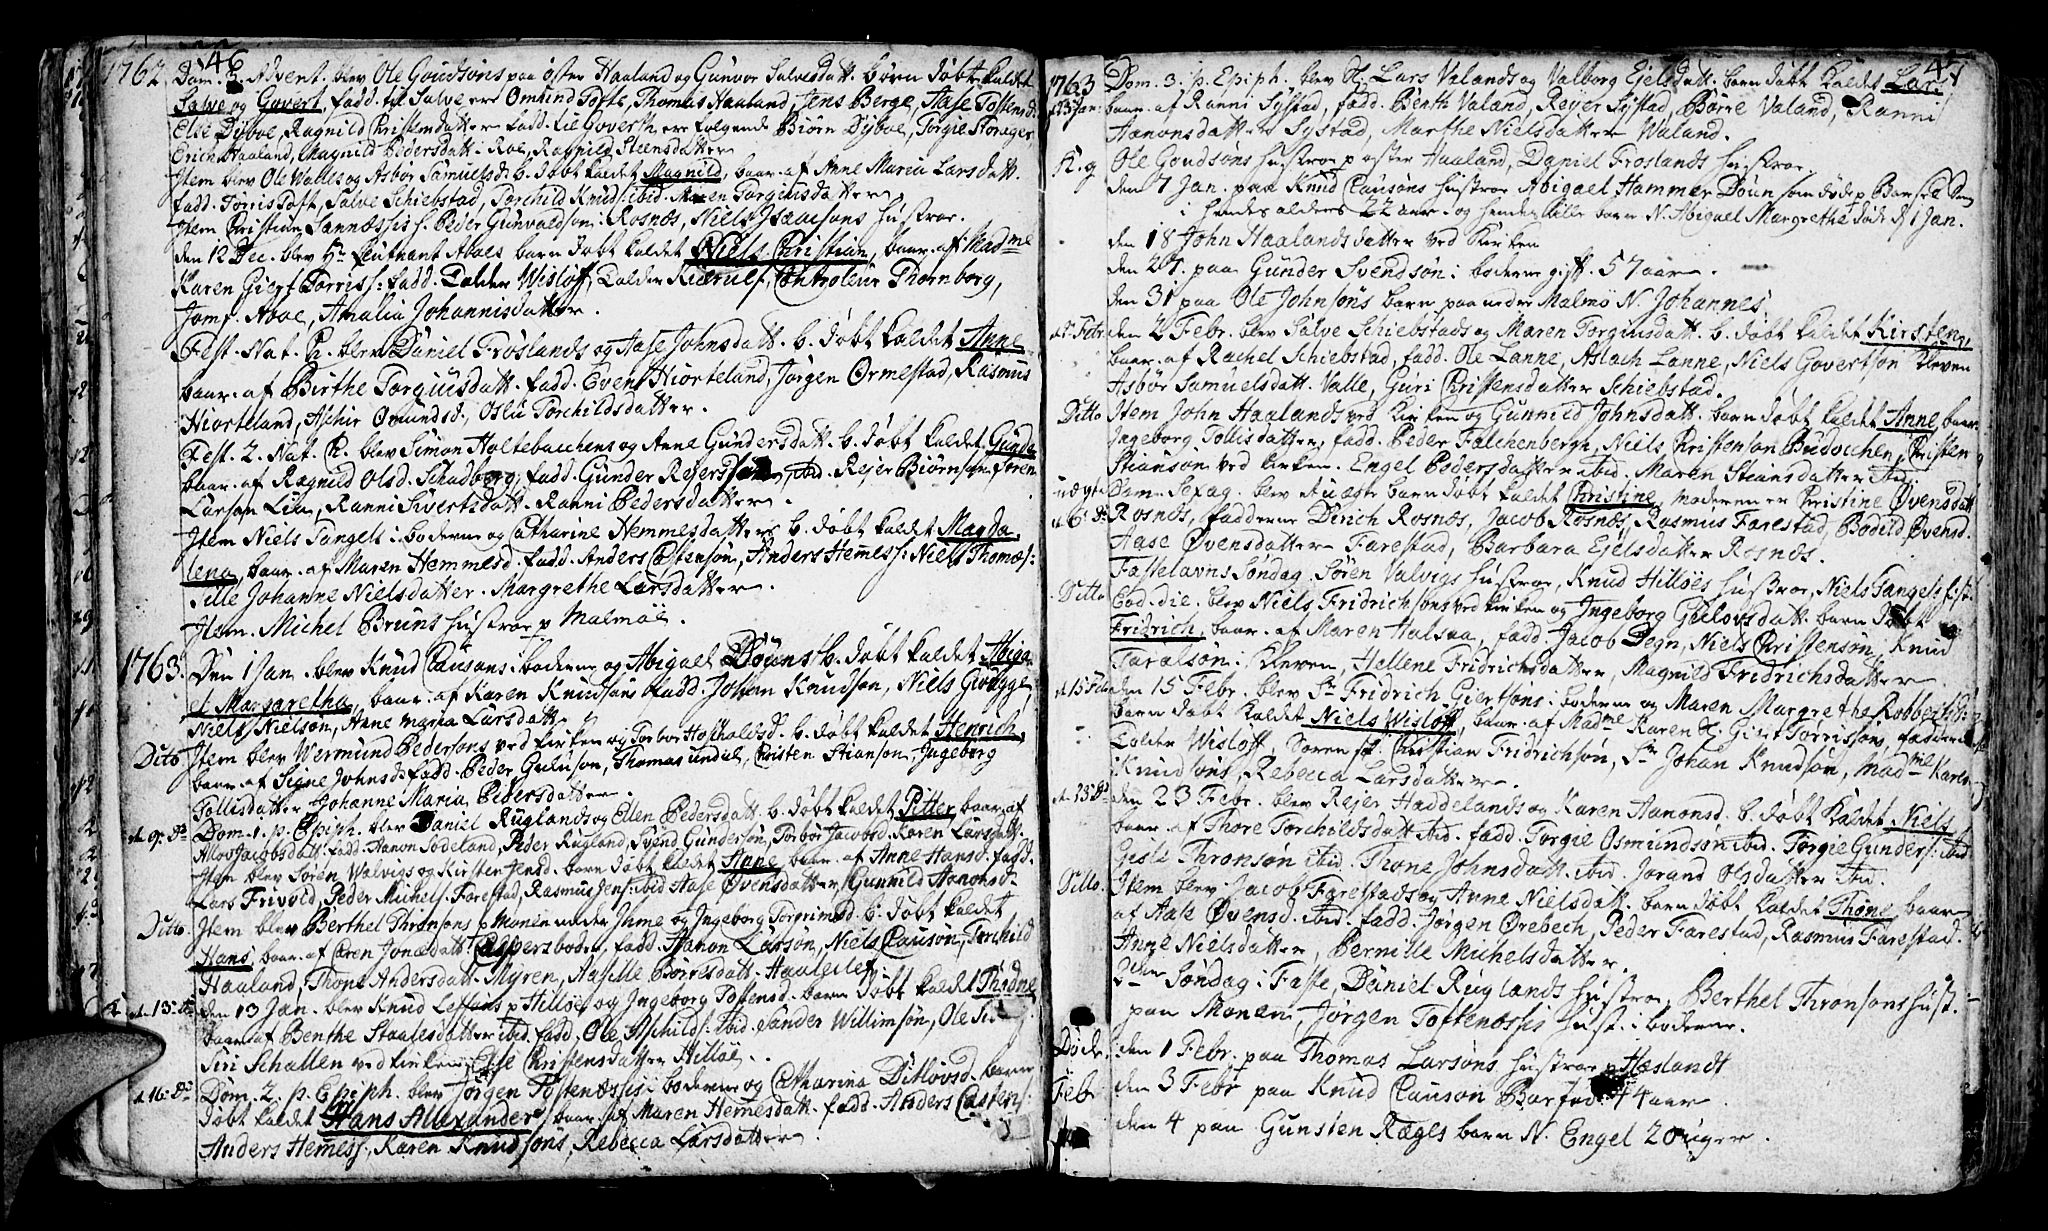 46
1762 Dom. 3. Advent. blev Ole Goudsøns paa øster Haaland og Gunvor Salvesdatt. børn døbt kaldet
Salve og Govert, fadd. til Salve ere Omund Tofte, Thomas Haaland, Jens Berge, Aase Tostensd.
Else Dyboe, Ragnild Christensdatter fadd. til Govert ere følgende Biørn Dyboe, Torgie Stoneger
Erich Haaland, Magnild Pedersdatt. i Roe, Ragnild Steensdatter
Item blev Ole Walles og Asbor Samuelsd. b. døbt kaldet Magnild, baar. af Anne Maria Larsdatt.
fadd. Torris Toft, Salve Schiebstad, Torchild Knuds: ibid. Maren Torgiusdatter
Item Christian Lannessis f. Peder Gunvaldsøn i Rosnæs, Niels Isaachsøns hustroe.
den 12 Dec. blev Hr. Leuthnant Aboes barn døbt kaldet Niels Christian, baar. af Madme
Karen Giert Torriss: fadd. Tolder Wisløff, Tolder Kierulf, Controleur Thornborg,
Jomf. Aboe, Amalia Johannisdatter.
Fest. Nat. Ch. blev Daniel Frøslands og Aase Johnsdatt. b. døbt kaldet Anne
baar. af Birthe Torgiusdatt. fadd. Even Hiorteland, Jørgen Ormestad, Rasmus
Hiorteland, Aschir Omundsd., Oslu Torchildsdatter.
Fest. 2. Nat. Ch. blev Simon Holtebacchens og Anne Gundersdatt. b. døbt kaldet Gunda
baar. af Ragnild Olsd. Schadberg, fadd. Gunder Rejersson, ibid. Rejer Biørnson, Søren
Larson Lia, Ranni Sivertsdatt. Ranni Pedersdatter.
Item Niels Tangels i boderne og Catharine Hemmesdatters b. døbt kaldet Magda
lena, baar. af Maren Hemmesd. fadd. Anders Castensøn, Anders Hemess: Niels Thomæs:
Sille Johanne Nielsdatter. Margrethe Larsdatter.
Item. Michel Bruns hustroe p Malmøe.
1763. Den 1 Jan. blev Knud Clausøns i boderne og Abigael Døuns b. døbt kaldet Abiga
el Margaretha, baar. af Karen Knudsøns fadd. Johan Knudsøn, Niels Giøgge
Niels Nielsøn, Anne Maria Larsdatt.
Dito Item blev Wermund Pedersøns ved kirken og Torbor Hosholdsd. b. døbt kaldet Henrich,
baar. af Signe Johnsd. fadd. Peder Gudison, Thomas undal, Christen Stianson, Ingeborg
Tollisdatter, Johanne Maria Pedersdatter.
d. 9. Do. Dom. 1. p. Epiph. blev Daniel Ruglands og Ellen Pedersdatt. b. døbt kaldet Pitter baar. af
Allov Jacobsdatt. fadd. Hanon Sodeland, Peder Rugland, Svend Gundersøn, Torbor Jacobsd. Karen Larsdatt.
Item blev Søren Valvigs og Kirsten Jensd. barn døbt kaldet Anne baar. af Anne Hansd. fadd.
Lars Frivold, Peder Michels. Farestad, Rasmus Jens: ibid. Aase Øvensdatter, Gunnild Aanonsd.
Ditto. Item blev Berthel Thronsøns p Monen under Ihme og Ingeborg Torgrimsd. b. døbt kaldet
Hans, baar. af Caren Jonædatt. Caspersboden, fadd. Hanon Larsøn, Niels Clausøn, Torchild
Haaland, Thone Andersdatt. Myren, Aasille Børresdatt. Haalelef
d. 13. Do. den 13 Jan. blev Knud Lessøns p Hilløe og Ingeborg Tostensd. barn døbt kaldet Thodne
baar. af Benthe Staalesdatter ibid. fadd. Ole Aschilds: ibid. Sander Willimsøn, Ole
Siri Schallen ved kirken, Else Christensdatter Hilløe.
d. 16. Do. Dom. 2. p. Epiph. blev Jørgen Tostenæssis i boderne og Catharina Ditlovsd. barn
døbt kaldet Hans Allexander, baar. af Maren Hemesdatt. fadd. Anders Castens:
Anders Hemess., Karen Knudsøns, Rebecca Larsdatter.
47
1763 Dom. 3. p. Epiph. blev Lars Valands og Valborg Ejelsdatt. barn døbt kaldet Lars
d. 23 Jan: baar. af Ranni Systad, fadd. Benth Valand, Rejer Systad, Børre Valand, Ranni
Aanonsdatter Systad, Marthe Nielsdatter Waland.
K. g Ole Goudsøns hustroe p øster Haaland, Daniel Frøslands hustroe.
den 7 Jan. paa Knud Clausøns hustroe Abigael Hammer Døun som døde p Barsel Seng
i hendes alders 22 aar. og hendes lille barn N. Abigael Margrethe døde d. 1 Jan.
den 18 John Haalands datter ved Kirken
den 27. paa Gunder Svendsøn i boderne gift. 57 aar.
den 31 paa Ole Johnsøns barn paa nedre Malmø N. Johannes
d. 2. Febr. den 2 Febr. blev Salve Schiebstads og Maren Torgiusdatt. b. døbt kaldet Kirsten,
baar. af Rachel Schiebstad, fadd. Ole Lanne, Aslach Lanne, Niels Govertson Kleven
Asbor Samuelsdatt. Valle, Guri Christensdatter Schiebstad.
Ditto Item John Haalands ved kirken og Gunnild Johnsdatt. barn døbt kaldet Anne baar.
Ingeborg Tollisdatter, fadd. Peder Falchenbergh, Niels Christenson Budocchen, Christen
Stianson ved kirken. Engel Pedersdatter ibid. Maren Steensdatter ibid.
uægte Dom. Sexag. blev et uægte barn døbt kaldet Christine, moderen er Christine Øvensdatt.
d. 6. Do. Rosnæs, fadderne Dirich Rosnæs, Jacob Rosnæs, Rasmus Farestad, Bodild Øvensd.
Aase Øvensdatter Farestad, Barbara Ejelsdatter Rosnæs.
Fastelavns Søndag. Søren Valvigs hustroe, Knud Hilløes hustroe, Niels Tangels hust:
Ditto Eod. die. blev Niels Fridrichsøns ved kirken og Ingeborg Gulovsdatt. barn døbt
Fridrich, baar. af Maren Halsaa, fadd. Jacob Degn, Niels Christensøn, Knud
Taralsøn i Kleven, Hellene Fridrichsdatter, Magnild Fridrichsdatter
d. 15 Febr. den 15 Febr. blev Sr. Fridrich Giertsøns i boderne og Maren Margrethe Robberts:
barn døbt kaldet Niels Wisløff, baar. af Madme Karen Sl. Giert Torrissøn, fadderne
Tolder Wisløff, Søren Christian Fridrichsøn, Sr. Johan Knudsøn, Madme Karen
Knudsøns, Rebecca Larsdatter.
d. 23. Do. den 23 Febr. blev Rejer Haddelands og Karen Aanonsd. b. døbt kaldet Niels
baar. af Thore Torchildsdatt. ibid. fadd. Torgie Osmundsøn ibid. Torgie Gunders: ibid
Gisle Thronsøn ibid. Thone Johnsdatt. ibid. Jorand Olsdatter ibid.
Ditto. Item blev Jacob Farestads og Anne Nielsdatt. barn døbt kaldet Thone, baar.
af Aase Øvensd. ibid. fadd. Jørgen Ørebech, Peder Farestad, Rasmus Farestad.
Anne Nielsdatter, Pernille Michelsdatter.
2den Søndag i Faste, Daniel Ruglands hustroe, Berthel Thronsons hust.
paa Monen, Jørgen Tostenæssis hust. i boderne.
Døde den 1 Febr. paa Thomas Larsøns hustroe p Hæslandt
Feb den 3 Febr paa Knud Clauson Barfod 44 aar
den 4 paa Gunsten Ræges barn N. Engel 20 uger.